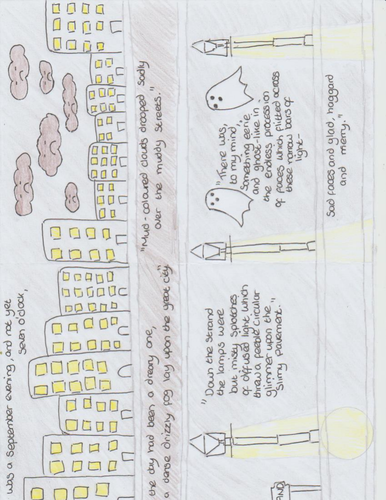 was a September evening, and not yet
seven o'clock,
the day had been a dreary one,
a dense drizzly fog lay upon the great city.
"Mud-coloured clouds drooped sadly
over the muddy streets."
"Down the Strand
the lamps were
but misty splotches
of diffused light which
threw a feeble circular
glimmer upon the
slimy pavement."
"There was,
to my mind,
something eerie
and ghost-like in
the endless procession
of faces which flitted across
these narrow bars of
Sad faces and glad, haggard
and merry."